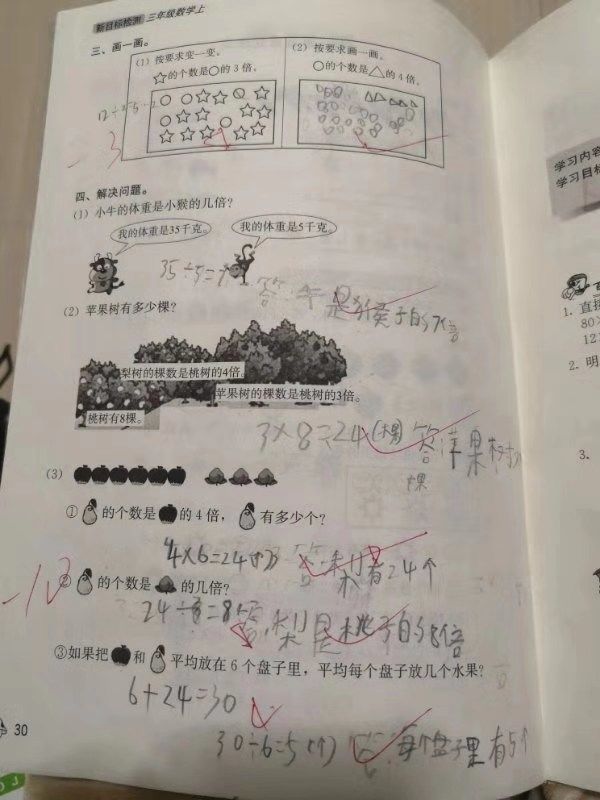 新目标检测 三年级数学上
三、画一画。
（1）按要求变一变。
☆的个数是○的3倍。
（2）按要求画一画。
○的个数是△的4倍。
3
四、解决问题。
（1）小牛的体重是小猴的几倍？
我的体重是35千克。
我的体重是5千克。
35÷5=7
答：牛是猴子的7倍
（2）苹果树有多少棵？
梨树的棵数是桃树的4倍。
苹果树的棵数是桃树的3倍。
桃树有8棵。
3×8=24（棵） 答：苹果树
棵
（3）
① 的个数是 的4倍， 有多少个？
4×6=24（个） 答：梨有24个
② 的个数是 的几倍？
24÷3=8 答：梨是桃子的8倍
③如果把 和 平均放在6个盘子里，平均每个盘子放几个水果？
6+24=30
30÷6=5（个） 答：每个盘子里有5个
30
学习内容
学习目标
1. 直接
80
12
2. 明
3.